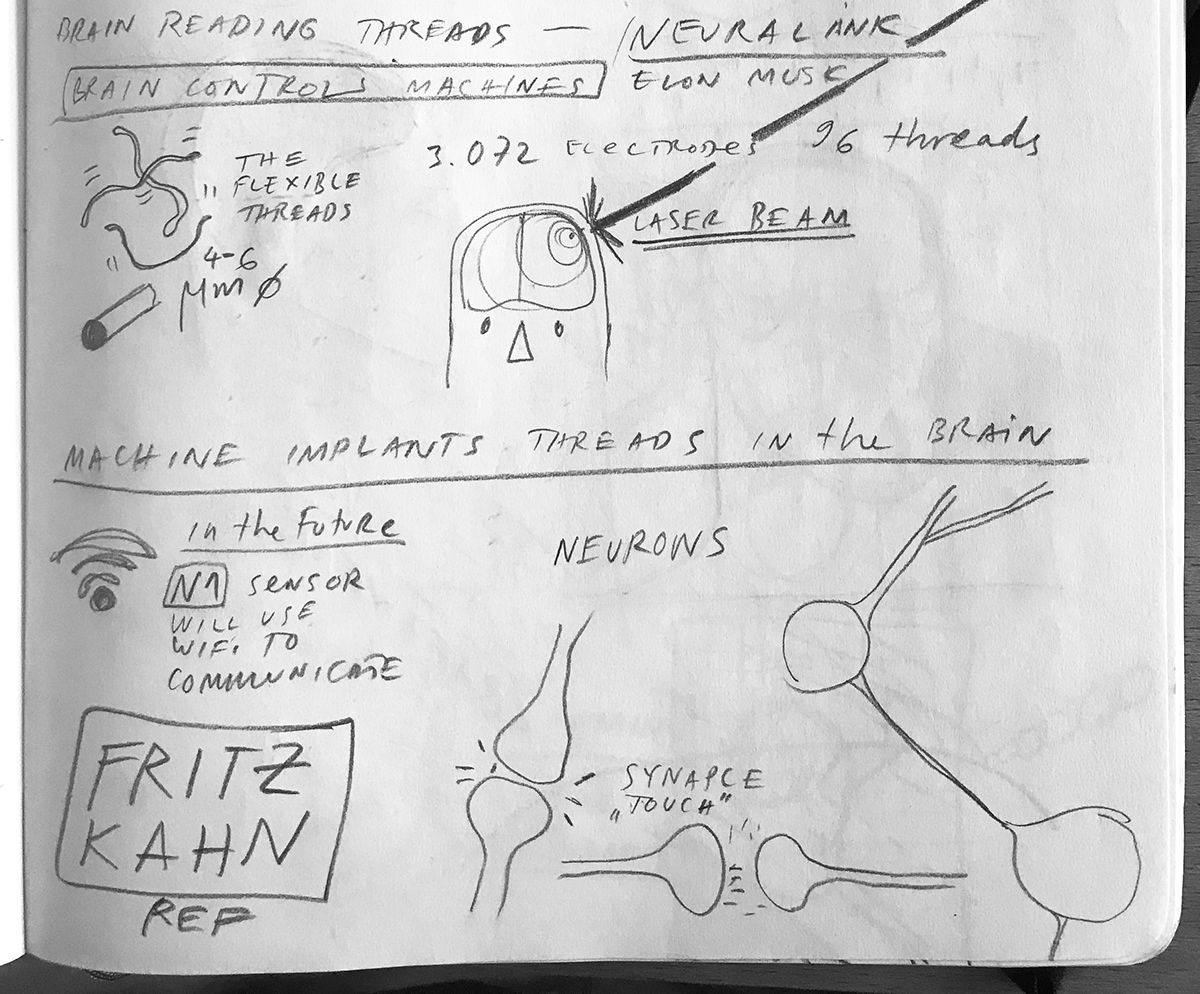 BRAIN READING THREADS — NEURALINK
BRAIN CONTROLS MACHINES
ELON MUSK
3.072 ELECTRODES 96 threads
THE
FLEXIBLE
THREADS
4-6
μm ∅
LASER BEAM
MACHINE IMPLANTS THREADS IN the BRAIN
in the Future
N1 SENSOR
WILL USE
WIFI TO
COMMUNICATE
NEURONS
FRITZ
KAHN
REF
SYNAPCE
„TOUCH"